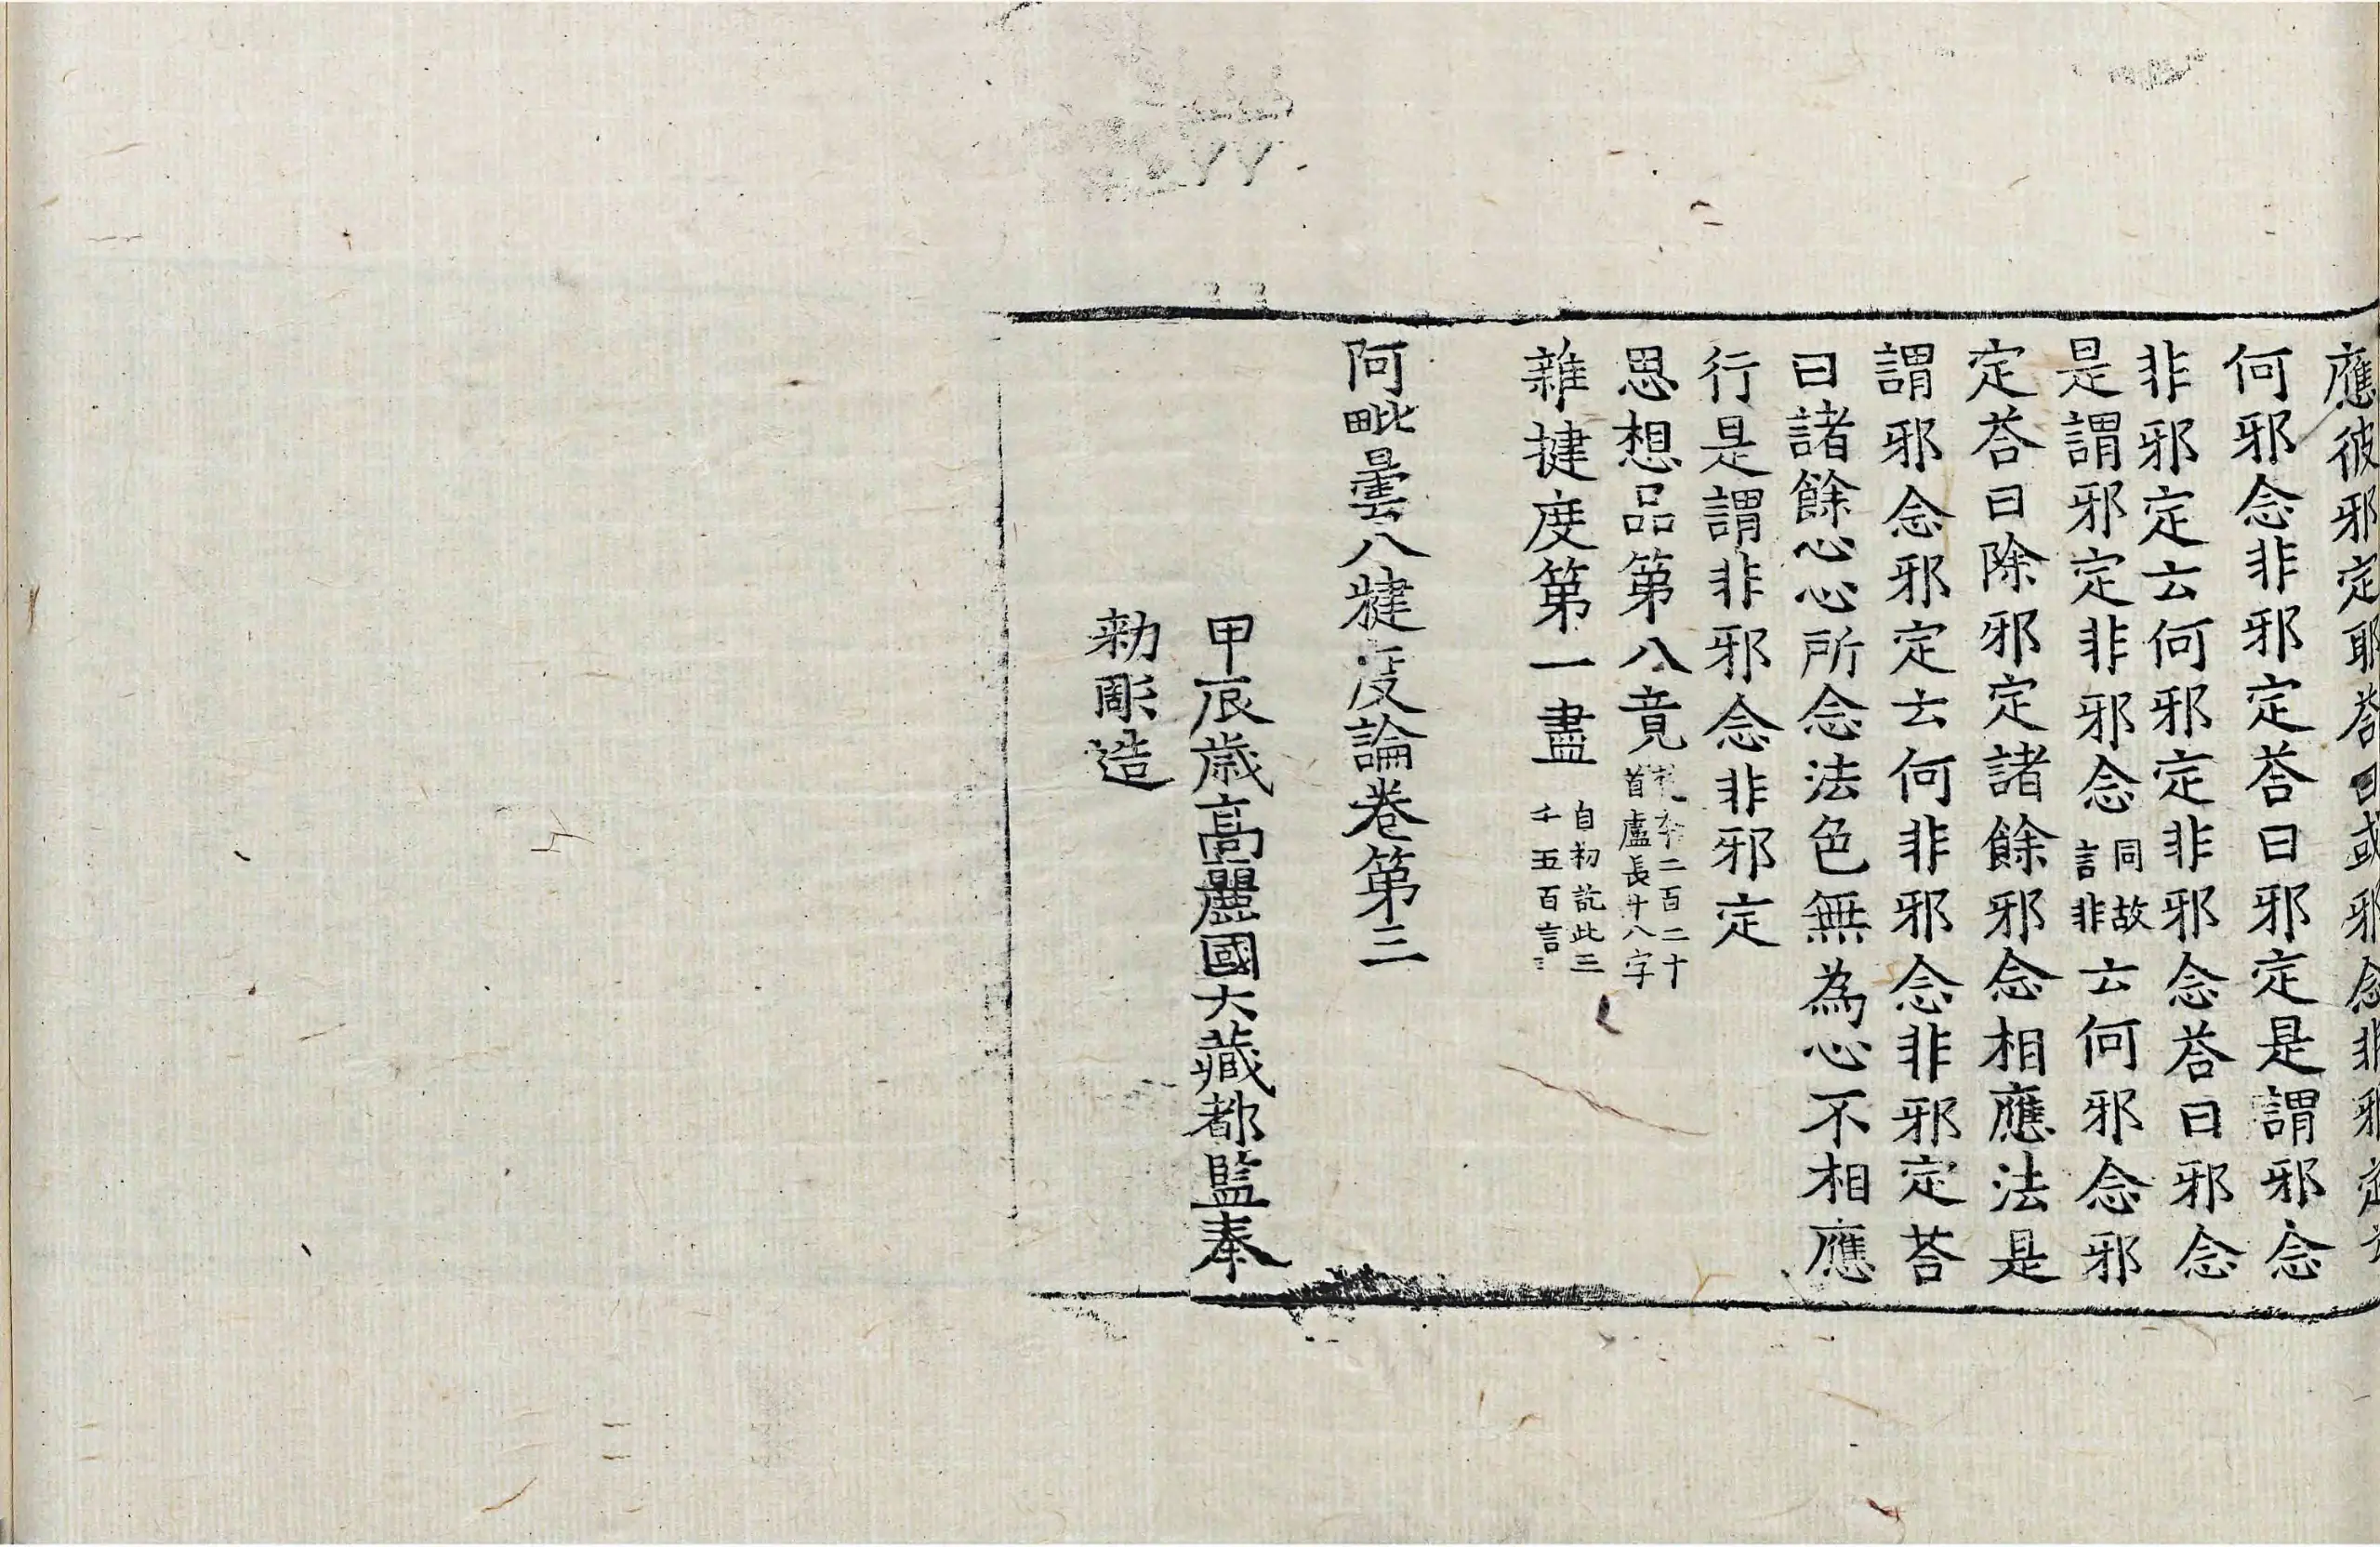 應彼邪定耶荅曰或邪念非邪定云
何邪念非邪定荅曰邪定是謂邪念
非邪定云何邪定非邪念荅曰邪念
是謂邪定非邪念同故言非云何邪念邪
定荅曰除邪定諸餘邪念相應法是
謂邪念邪定云何非邪念非邪定荅
曰諸餘心心所念法色無為心不相應
行是謂非邪念非邪定
思想品第八竟梵本二百二十首盧長廾八字
雜揵度第一盡自初訖此三千五百言
阿毗曇八犍度論卷第三
甲辰歲高麗國大藏都監奉
勑彫造